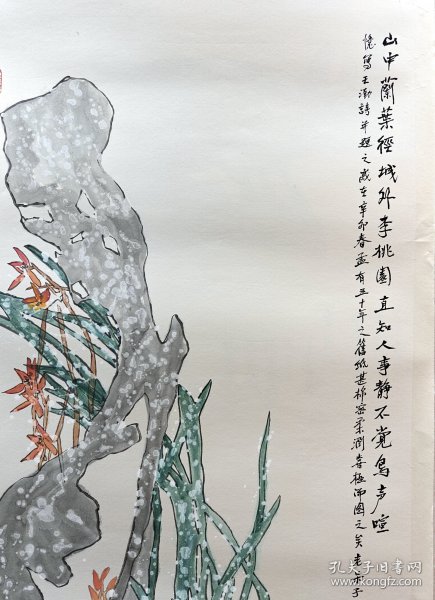 山中蘭葉徑城外李桃園直知人事静不覺鳥声喧
憶寫王勃詩并題之歲在辛卯春孟有五十年之舊紙甚棉密柔潤喜極而圖之矣
孔夫子旧书网
www.kongfz.com